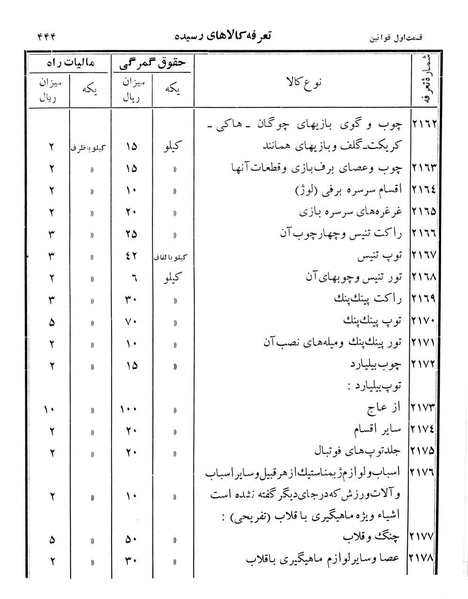 قسمت اول قوانین تعرفه کالاهای رسیده ۴۴۴
شمارهٔ تعرفه نوع کالا حقوق گمرگی مالیات راه
یکه میزان ریال یکه میزان ریال
۲۱۶۲ چوب و گوی بازیهای چوگان ـ هاکی ـ
کریکت ـ گلف و بازیهای همانند کیلو ۱۵ کیلو باظرف ۲
۲۱۶۳ چوب و عصای برف بازی و قطعات آنها » ۱۵ » ۲
۲۱۶۴ اقسام سرسره برفی (لوژ) » ۱۰ » ۲
۲۱۶۵ غرغره‌های سرسره بازی » ۲۰ » ۲
۲۱۶۶ راکت تنیس و چهارچوب آن » ۲۵ » ۳
۲۱۶۷ توپ تنیس کیلو با لفاف ۴۲ » ۳
۲۱۶۸ تور تنیس و چوبهای آن کیلو ۶ » ۲
۲۱۶۹ راکت پینك پنك » ۳۰ » ۳
۲۱۷۰ توپ پینك پنك » ۷۰ » ۵
۲۱۷۱ تور پینك پنك و میله‌های نصب آن » ۱۰ » ۲
۲۱۷۲ چوب بیلیارد » ۱۵ » ۲
توپ بیلیارد :
۲۱۷۳ از عاج » ۱۰۰ » ۱۰
۲۱۷۴ سایر اقسام » ۲۰ » ۲
۲۱۷۵ جلد توپهای فوتبال » ۲۰ » ۲
۲۱۷۶ اسباب و لوازم ژیمناستیك از هر قبیل و سایر اسباب
و آلات ورزش که در جای دیگر گفته نشده است » ۱۰ » ۲
اشیاء ویژه ماهیگیری با قلاب (تفریحی) :
۲۱۷۷ چنگ و قلاب » ۵۰ » ۵
۲۱۷۸ عصا و سایر لوازم ماهیگیری باقلاب » ۳۰ » ۲